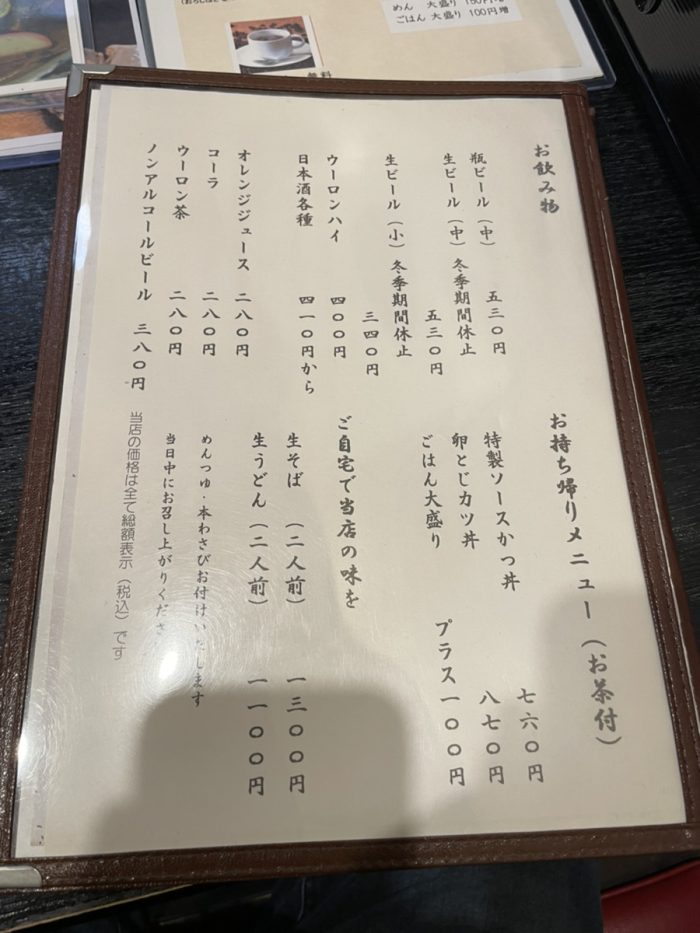 めん 大盛り 150円増
ごはん 大盛り 100円増
無料
お飲み物
瓶ビール（中） 五三〇円
生ビール（中）冬季期間休止
五三〇円
生ビール（小）冬季期間休止
三四〇円
ウーロンハイ 四〇〇円
日本酒各種 四一〇円から
オレンジジュース 二八〇円
コーラ 二八〇円
ウーロン茶 二八〇円
ノンアルコールビール 三八〇円
お持ち帰りメニュー（お茶付）
特製ソースかつ丼 七六〇円
卵とじカツ丼 八七〇円
ごはん大盛り プラス一〇〇円
ご自宅で当店の味を
生そば（二人前） 一三〇〇円
生うどん（二人前） 一一〇〇円
めんつゆ・本わさびお付けいたします
当日中にお召し上がりくださ
当店の価格は全て総額表示（税込）です